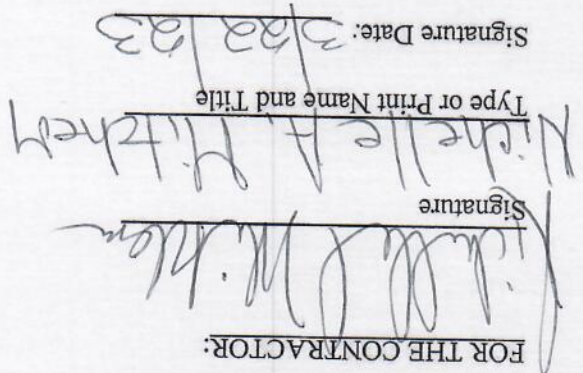 FOR THE CONTRACTOR:
Signature
Nichelle A. Mitchem
Type or Print Name and Title
Signature Date: 3/22/23